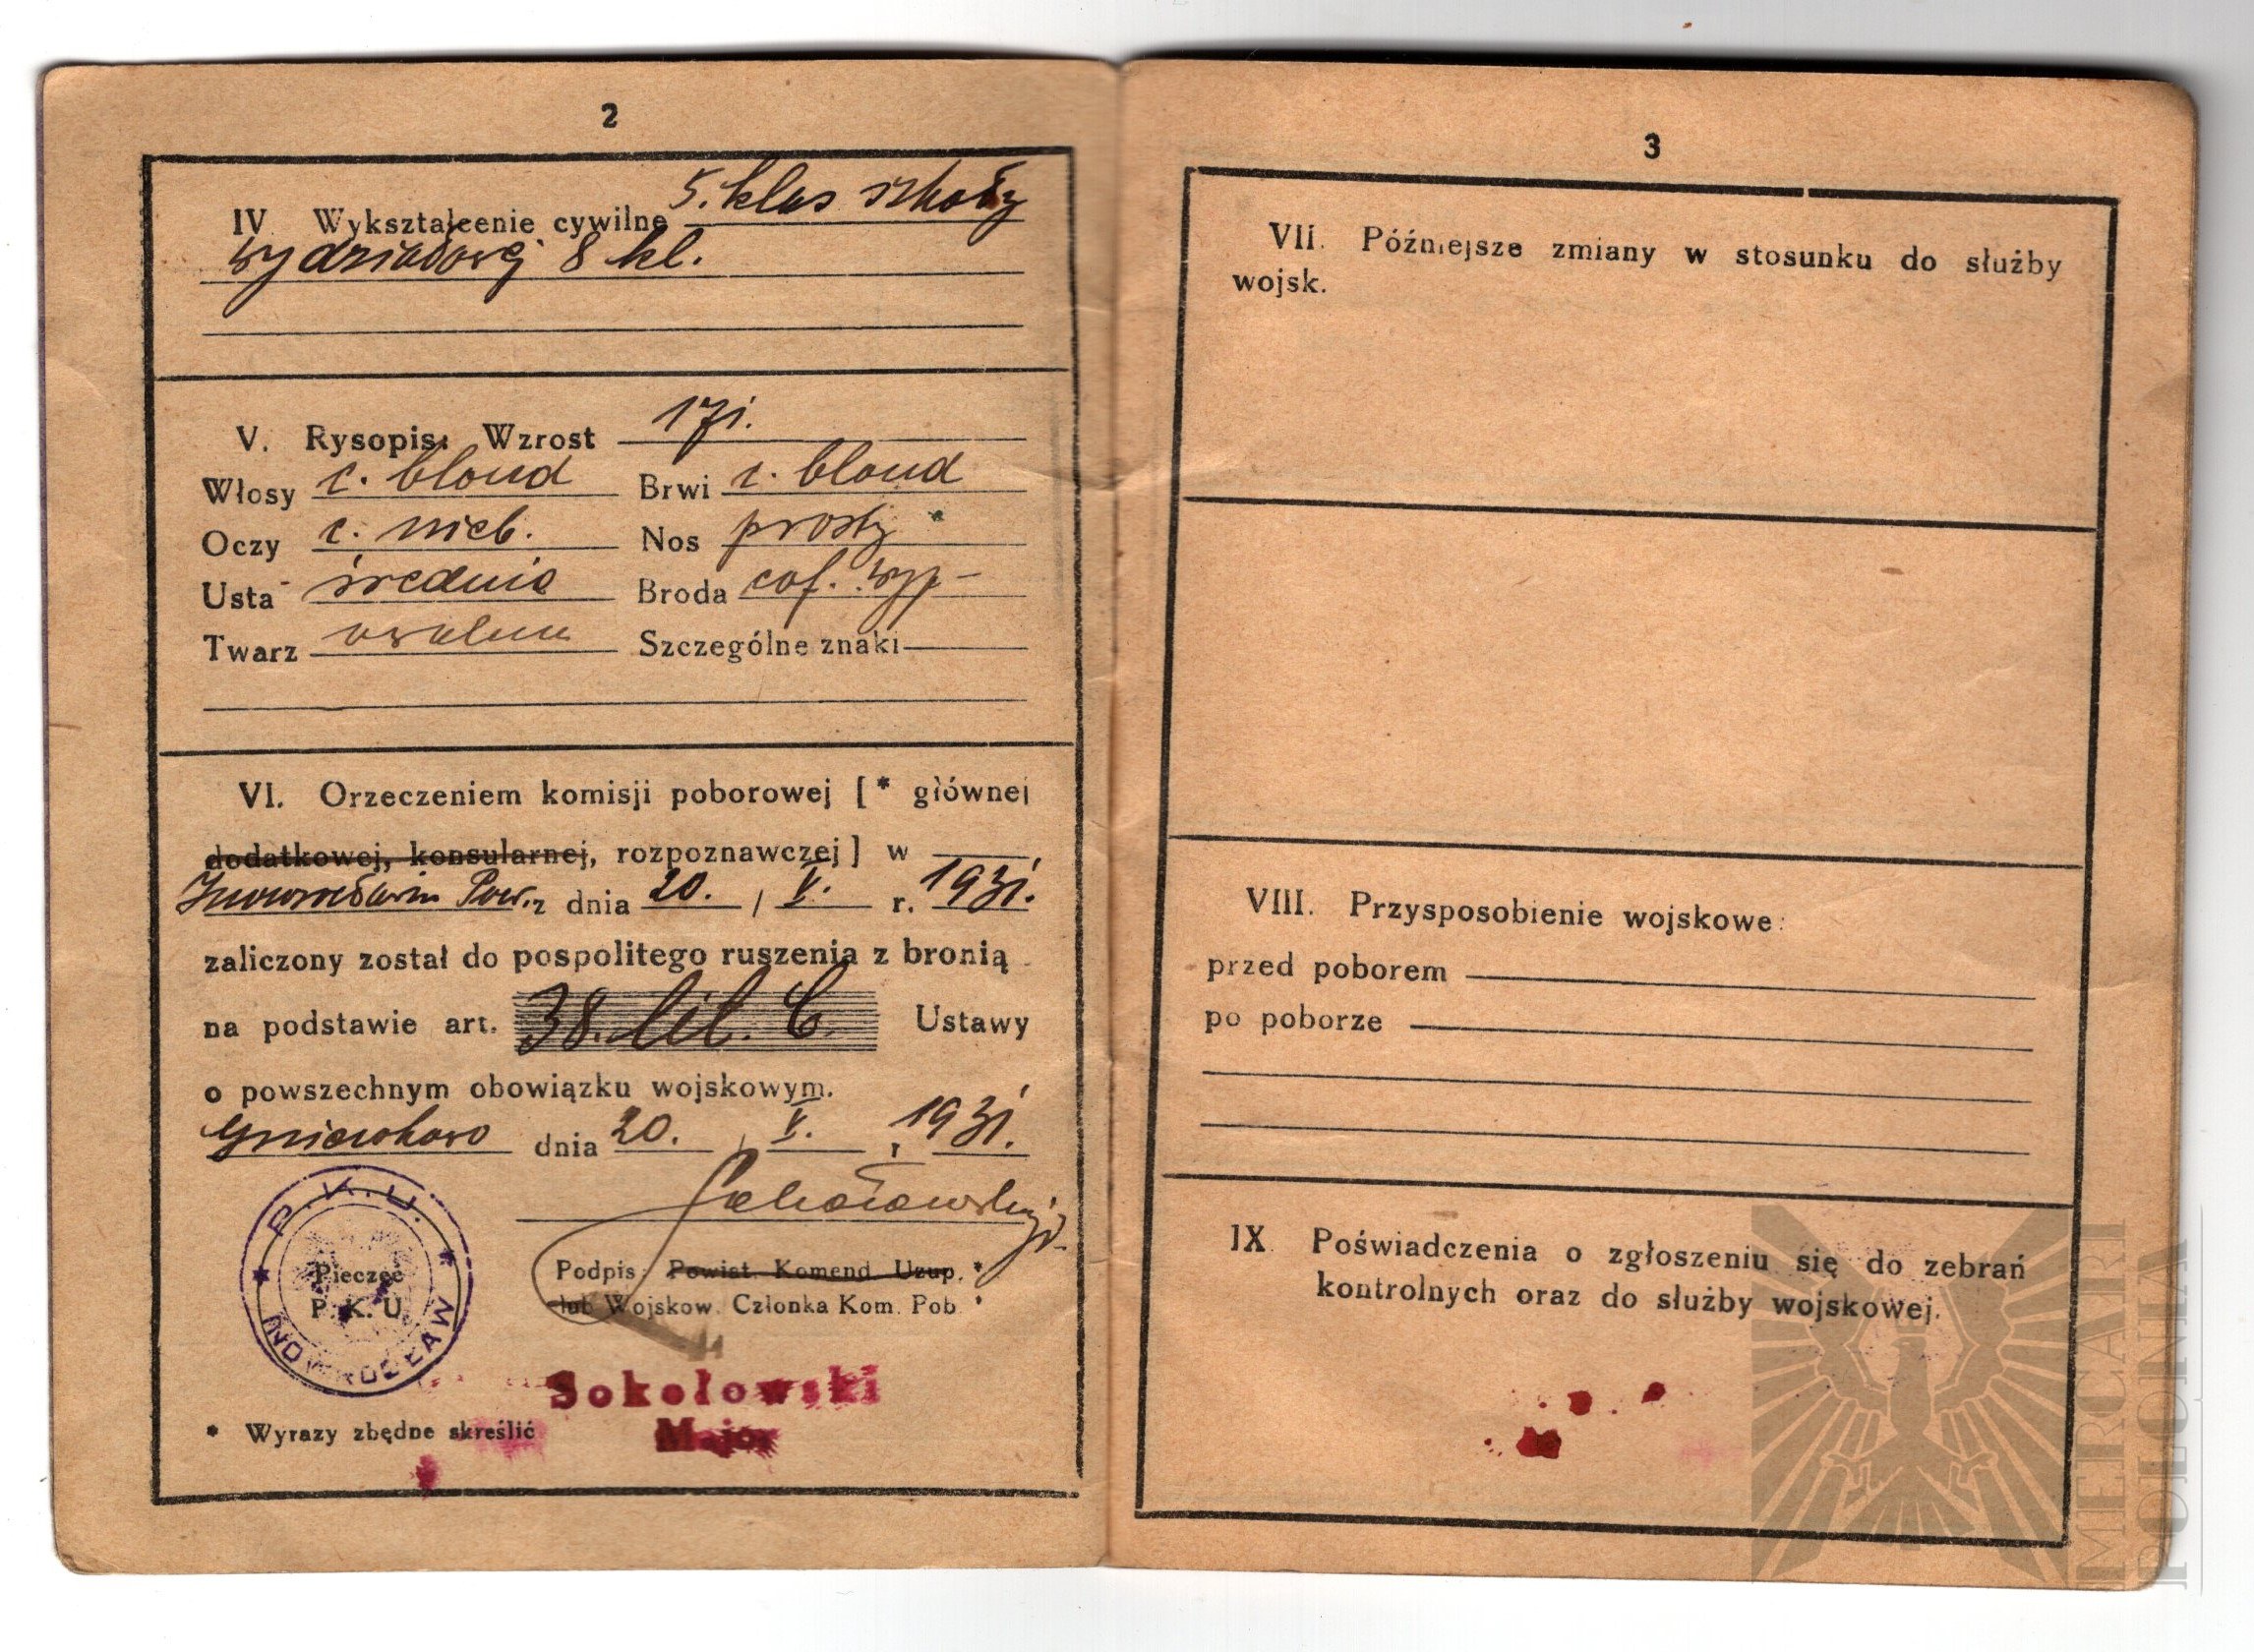 2
IV Wykształcenie cywilne 5. klas szkoły
wydziałowej 8 kl.
V. Rysopis: Wzrost 171.
Włosy c. blond Brwi c. blond
Oczy c. nieb. Nos prosty
Usta średnie Broda
Twarz owalna Szczególne znaki
VI. Orzeczeniem komisji poborowej [* głównej
dodatkowej, konsularnej, rozpoznawczej] w
Inowrocławiu Pow. z dnia 20. / V. r. 1931.
zaliczony został do pospolitego ruszenia z bronią
na podstawie art. 38. lit. C. Ustawy
o powszechnym obowiązku wojskowym.
Gniewkowo dnia 20. / V. r 1931.
Sokołowski
Podpis: Powiat. Komend Uzup. *
lub Wojskow. Członka Kom. Pob. *
P. K. U. INOWROCŁAW
Pieczęć
P. K. U.
Sokołowski
Major
* Wyrazy zbędne skreślić
3
VII. Późniejsze zmiany w stosunku do służby
wojsk.
VIII. Przysposobienie wojskowe:
przed poborem
po poborze
IX Poświadczenia o zgłoszeniu się do zebrań
kontrolnych oraz do służby wojskowej.
MERCATRI
POLONIA